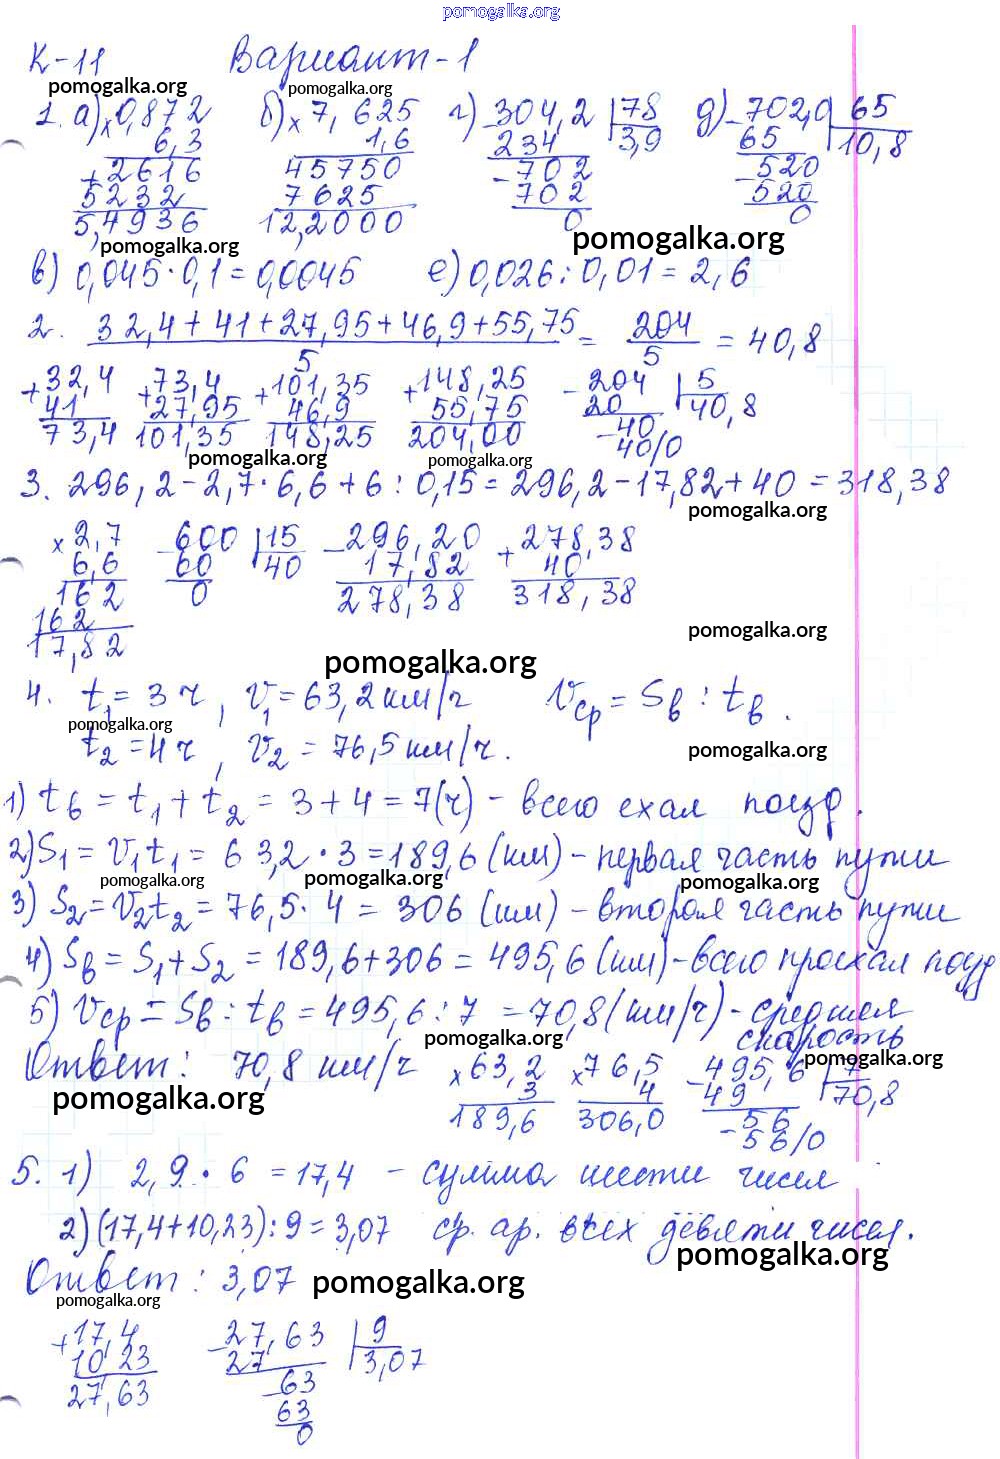 pomogalka.org
К-11 Вариант-1
pomogalka.org pomogalka.org
1. а) × 0,872 б) × 7,625 г) - 304,2 | 78 д) - 702,0 | 65
6,3 1,6 234 3,9 65 10,8
+ 2616 45750 - 702 - 520
5232 7625 702 520
5,4936 12,2000 0 0
pomogalka.org pomogalka.org
в) 0,045 · 0,1 = 0,0045 е) 0,026 : 0,01 = 2,6
2. 32,4 + 41 + 27,95 + 46,9 + 55,75 = 204 = 40,8
5 5
+ 32,4 + 73,4 + 101,35 + 148,25 - 204 | 5
41 27,95 46,9 55,75 20 40,8
73,4 101,35 148,25 204,00 - 40
40/0
pomogalka.org pomogalka.org
3. 296,2 - 2,7 · 6,6 + 6 : 0,15 = 296,2 - 17,82 + 40 = 318,38
pomogalka.org
× 2,7 - 600 | 15 - 296,20 + 278,38
6,6 60 40 17,82 40
162 0 278,38 318,38
162
17,82
pomogalka.org
pomogalka.org
4. t₁ = 3 ч, v₁ = 63,2 км/ч vср = Sв : tв.
pomogalka.org
t₂ = 4 ч, v₂ = 76,5 км/ч.
pomogalka.org
1) tв = t₁ + t₂ = 3 + 4 = 7(ч) - всего ехал поезд.
2) S₁ = v₁t₁ = 63,2 · 3 = 189,6 (км) - первая часть пути
pomogalka.org pomogalka.org pomogalka.org
3) S₂ = v₂t₂ = 76,5 · 4 = 306 (км) - вторая часть пути
4) Sв = S₁ + S₂ = 189,6 + 306 = 495,6 (км) - всего проехал поезд
5) vср = Sв : tв = 495,6 : 7 = 70,8 (км/ч) - средняя
скорость
pomogalka.org pomogalka.org
Ответ: 70,8 км/ч × 63,2 × 76,5 - 495,6 | 7
3 4 49 70,8
189,6 306,0 - 56
- 56/0
pomogalka.org
5. 1) 2,9 · 6 = 17,4 - сумма шести чисел
2) (17,4 + 10,23) : 9 = 3,07 ср. ар. всех девяти чисел.
pomogalka.org
Ответ: 3,07 pomogalka.org
pomogalka.org
+ 17,4 - 27,63 | 9
10 23 27 3,07
27,63 - 63
63
0